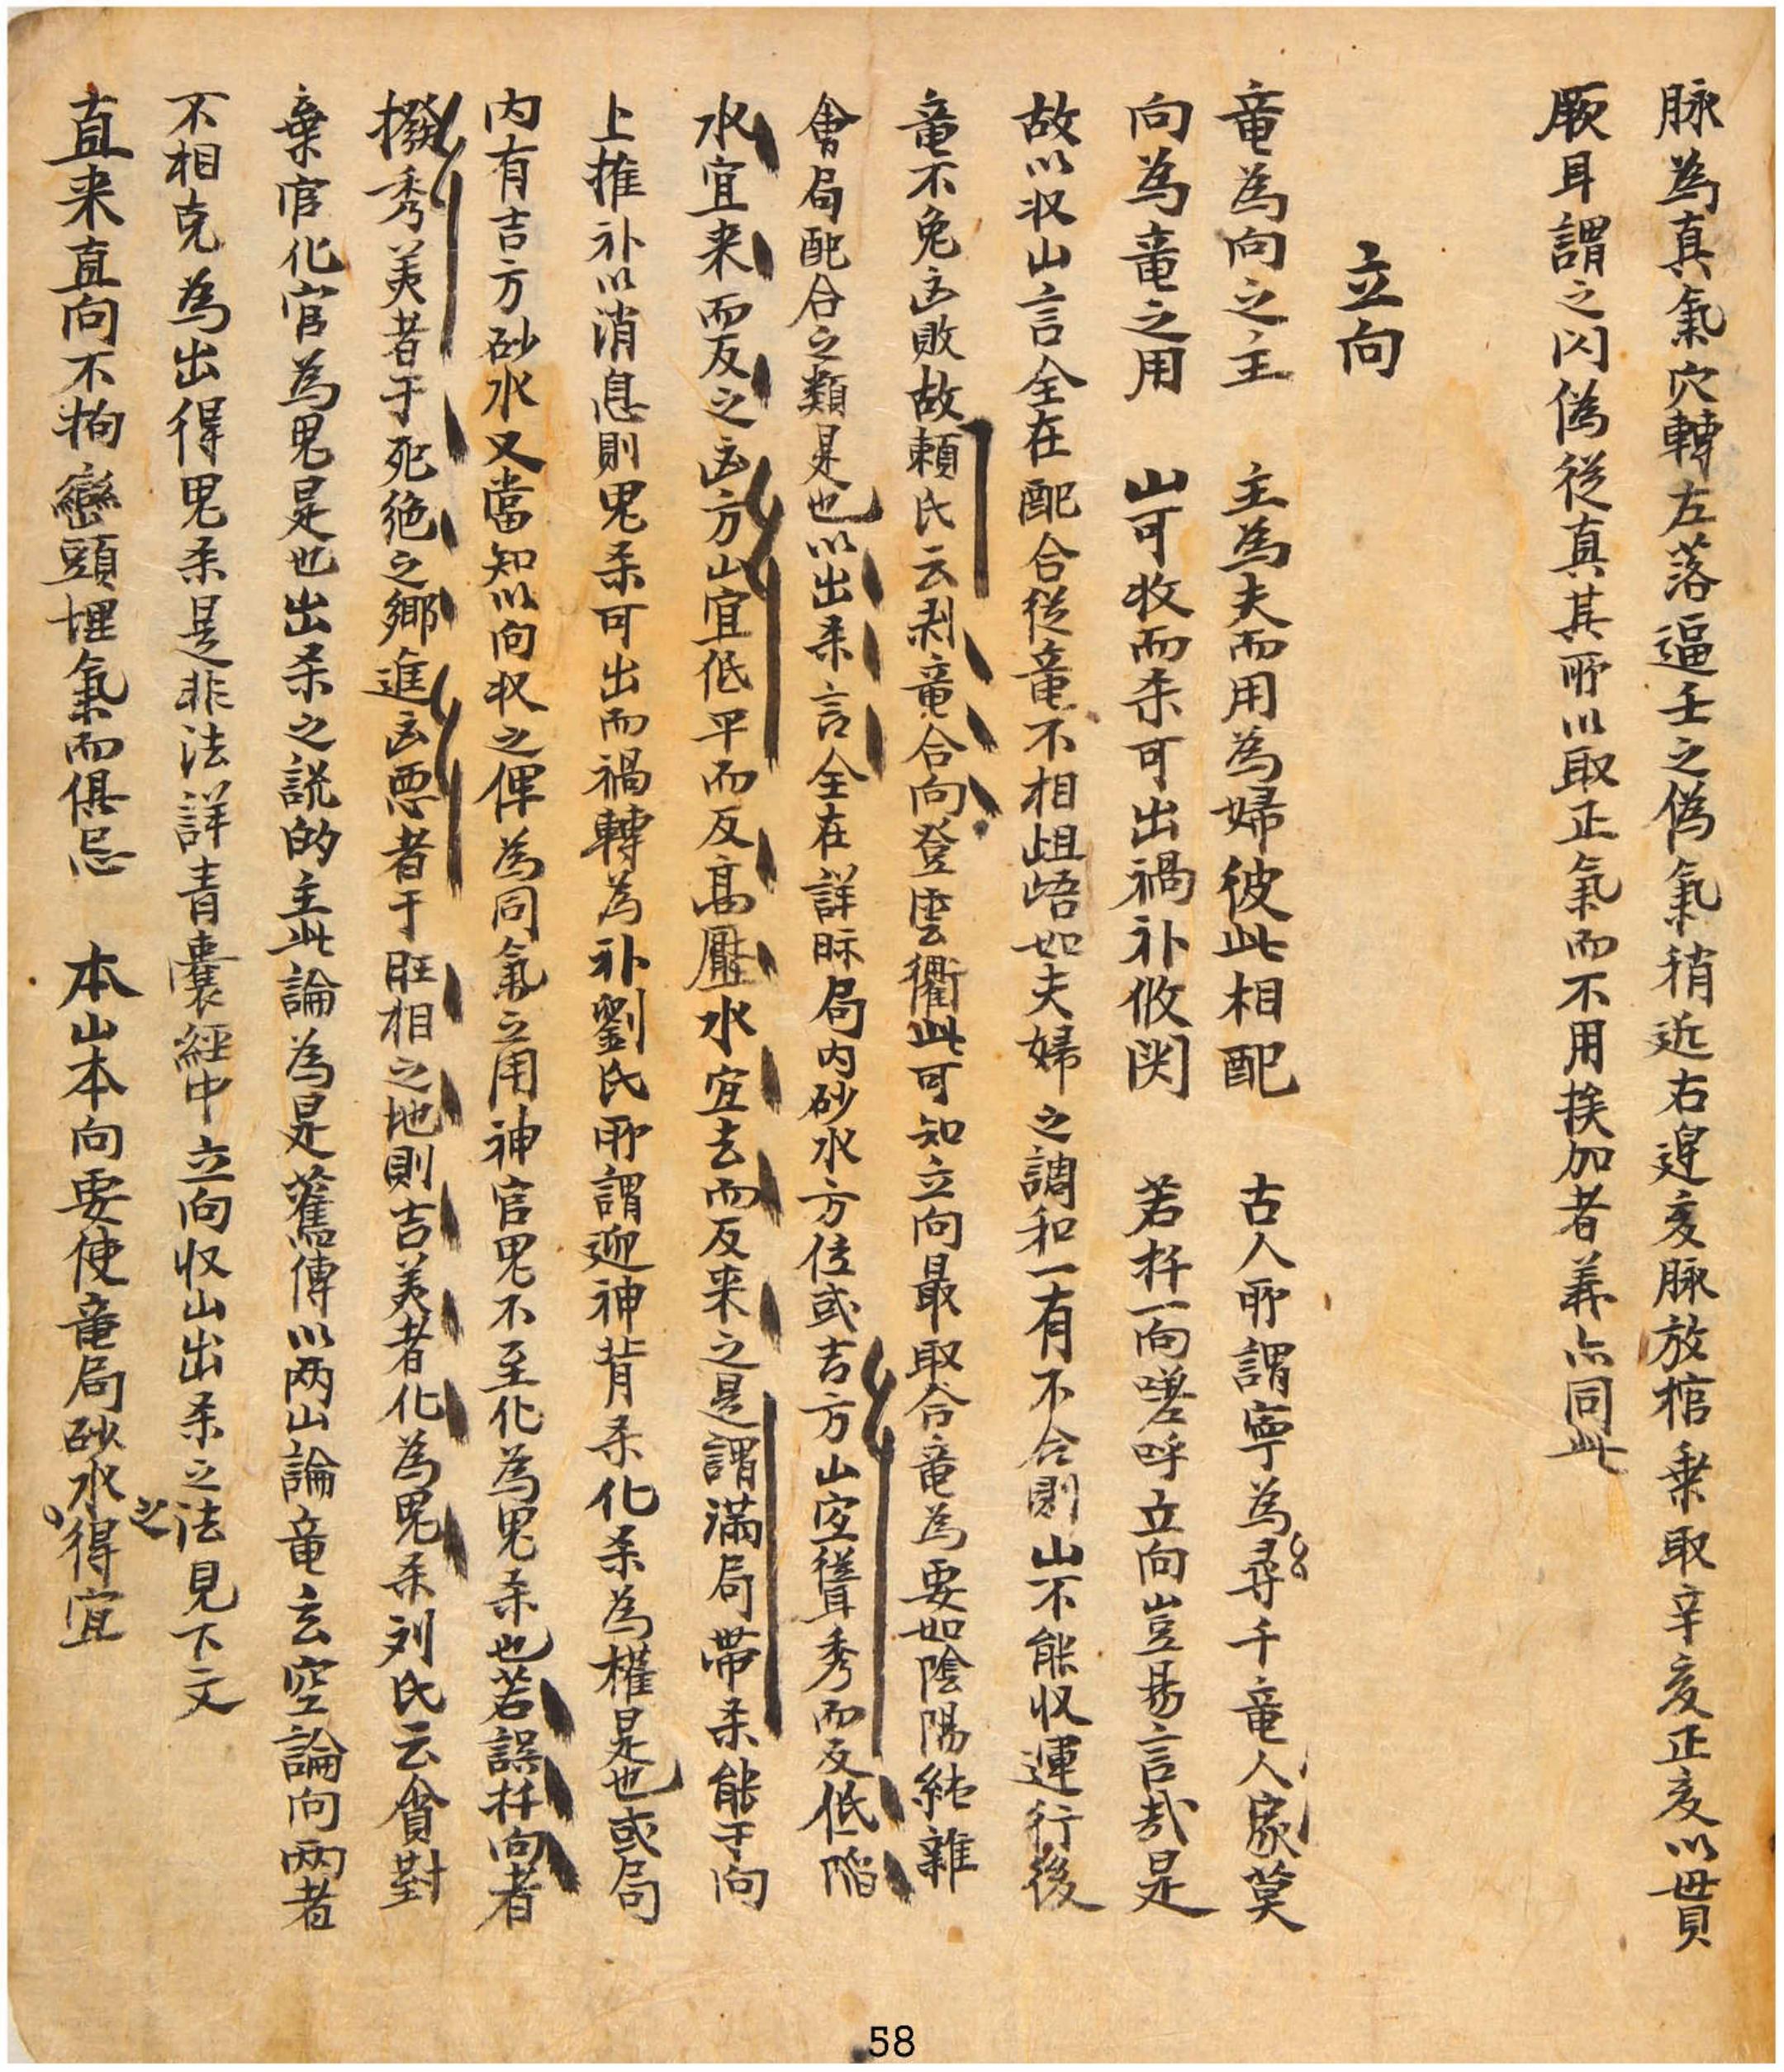 脉為真氣穴轉左落逼壬之偽氣稍近右遑亥脉放棺乗取辛亥正亥以貫
厥耳謂之閃偽從真其所以取正氣而不用挨加者義亦同此
立向
竜為向之主 主為夫而用為婦彼此相配 古人所謂寧為尋千竜人家莫
向為竜之用 山可收而杀可出禍补攸関 若扦一向嗟呼立向豈易言哉是
故以収山言全在配合從竜不相岨峿如夫婦之調和一有不合則山不能収運行後
竜不免凶敗故頼氏云剥竜合向登雲衢此可知立向最取合竜為要如陰陽純雜
會局配合之類是也以出杀言全在詳眎局内砂水方位或吉方山宜聳秀而反低陥
水宜来而反之凶方山宜低平而反髙壓水宜去而反来之是謂滿局帯杀能于向
上推补以消息則鬼杀可出而禍轉為补劉氏所謂迎神背杀化杀為權是也或局
内有吉方砂水又當知以向収之俾為同氣立用神官鬼不至化為鬼杀也若誤扦向者
撥秀美者于死絶之鄉進凶悪者于旺相之地則吉美者化為鬼杀刘氏云貪對
棄官化官為鬼是也出杀之説的主此論為是舊傳以两山論竜玄空論向两者
不相克為出得鬼杀是非法詳青囊經中立向収山出杀之法見下文
直来直向不拘巒頭埋氣而俱忌 本山本向要使竜局砂水之得宜
58